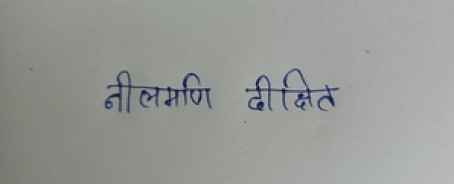 नीलमणि दीक्षित